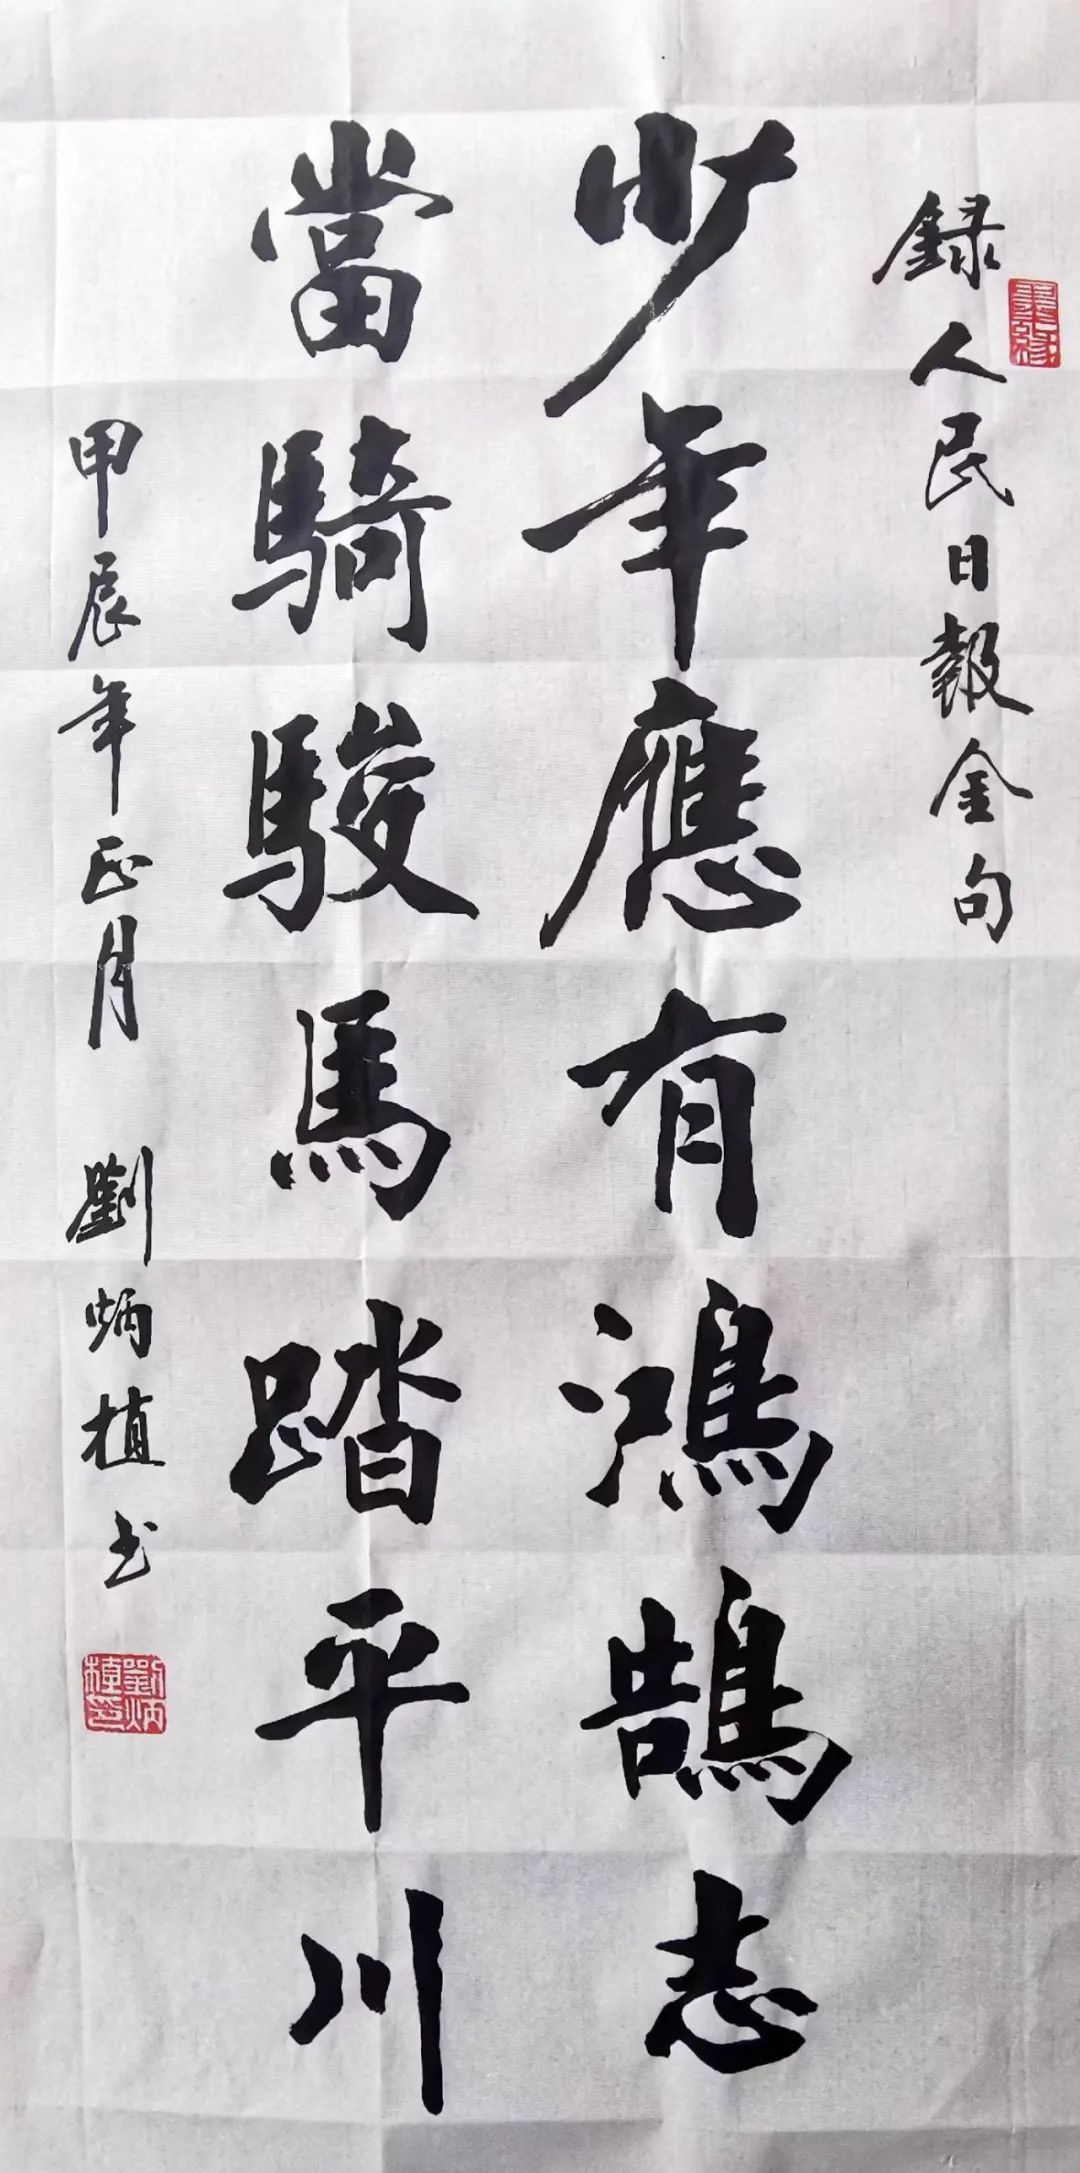 録人民日報金句
少年應有鴻鵠志
當騎駿馬踏平川
甲辰年正月 劉炳植书
劉炳植印